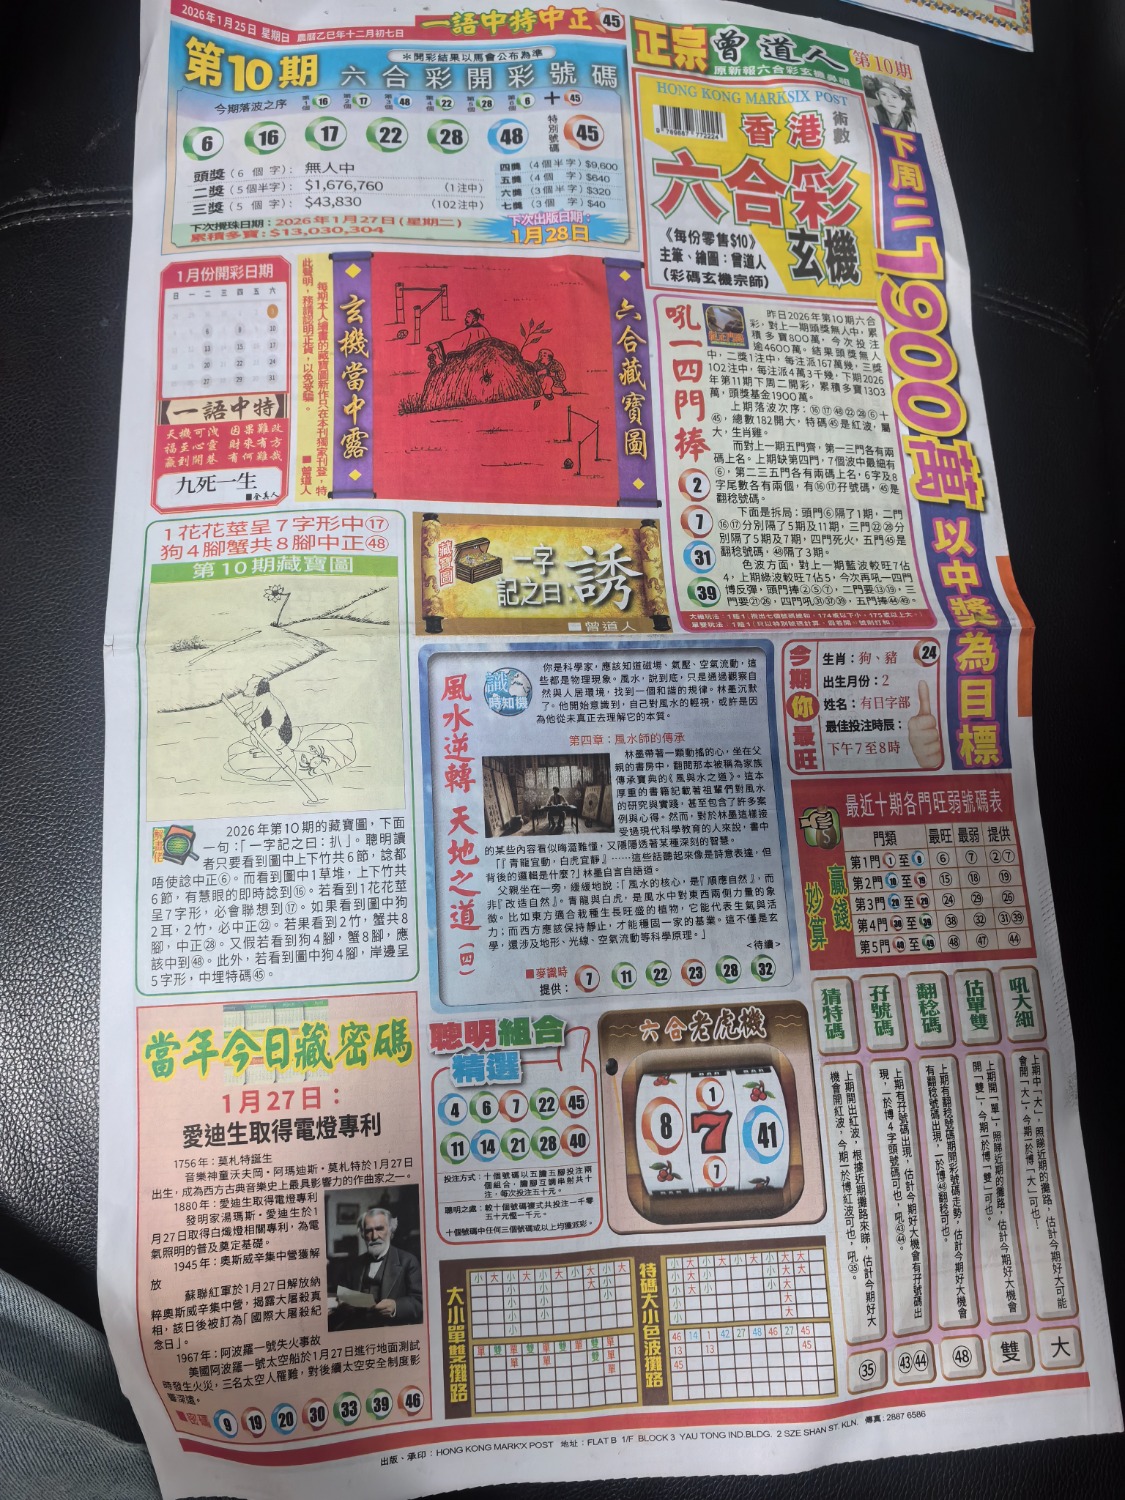 2026年1月25日 星期日 農曆乙巳年十二月初七日
一語中特中正 45
第10期
*開彩結果以馬會公布為準
六合彩開彩號碼
今期落波之序 第1個 16 第2個 17 第3個 48 第4個 22 第5個 28 第6個 6 + 45
6 16 17 22 28 48 特別號碼 45
頭獎(6 個 字): 無人中
二獎(5個半字): $1,676,760 (1注中)
三獎(5 個 字): $43,830 (102注中)
四獎 (4個半字) $9,600
五獎 (4 個 字) $640
六獎 (3個半字) $320
七獎 (3 個 字) $40
下次攪珠日期:2026年1月27日(星期二)
累積多寶:$13,030,304
下次出版日期:
1月28日
正宗曾道人
第10期
原新報六合彩玄機鼻祖
HONG KONG MARKSIX POST
香港
術數
六合彩
玄機
《每份零售$10》
主筆、繪圖:曾道人
(彩碼玄機宗師)
下周二1900萬以中獎為目標
1月份開彩日期
日 一 二 三 四 五 六
一語中特
天機可洩 因果難改
福至心靈 財來有方
贏到開巷 有何難哉
九死一生
每期本人繪畫的藏寶圖新作只在本刊獨家刊登,特
此聲明,務請認明正貨,以免受騙。 ■曾道人
玄機當中露
六合藏寶圖
吼一四門捧
2
7
31
39
昨日2026年第10期六合
彩,對上一期頭獎無人中,累
積多寶800萬,今次投注
逾4600萬。結果頭獎無人
中,二獎1注中,每注派167萬幾,三獎
102注中,每注派4萬3千幾,下期2026
年第11期下周二開彩,累積多寶1303
萬,頭獎基金1900萬。
上期落波次序:⑯⑰㊽㉒㉘⑥十
㊺,總數182開大,特碼㊺是紅波,屬
大,生肖雞。
而對上一期五門齊,第一三門各有兩
碼上名。上期缺第四門,7個波中最細有
⑥,第二三五門各有兩碼上名,6字及8
字尾數各有兩個,有⑯⑰孖號碼,㊺是
翻稔號碼。
下面是拆局:頭門⑥隔了1期,二門
⑯⑰分別隔了5期及11期,三門㉒㉘分
別隔了5期及7期,四門死火,五門㊺是
翻稔號碼,㊽隔了3期。
色波方面,對上一期藍波較旺7佔
4,上期綠波較旺7佔5,今次再吼一四門
博反彈,頭門捧②⑤⑦,二門要⑬⑲,三
門要㉑㉖,四門吼㉛㊲㊴,五門捧㊹㊾。
1花花莖呈7字形中⑰
狗4腳蟹共8腳中正㊽
第10期藏寶圖
藏寶圖
一字
記之曰:誘
■曾道人
解畫佬
2026年第10期的藏寶圖,下面
一句:「一字記之曰:扒」。聰明讀
者只要看到圖中上下竹共6節,諗都
唔使諗中正⑥。而看到圖中1草堆,上下竹共
6節,有慧眼的即時諗到⑯。若看到1花花莖
呈7字形,必會聯想到⑰。如果看到圖中狗
2耳,2竹,必中正㉒。若果看到2竹,蟹共8
腳,中正㉘。又假若看到狗4腳,蟹8腳,應
該中到㊽。此外,若看到圖中狗4腳,岸邊呈
5字形,中埋特碼㊺。
風水逆轉 天地之道(四)
識時知機
你是科學家,應該知道磁場、氣壓、空氣流動,這
些都是物理現象。風水,說到底,只是通過觀察自
然與人居環境,找到一個和諧的規律。林墨沉默
了。他開始意識到,自己對風水的輕視,或許是因
為他從未真正去理解它的本質。
第四章:風水師的傳承
林墨帶著一顆動搖的心,坐在父
親的書房中,翻閱那本被稱為家族
傳承寶典的《風與水之道》。這本
厚重的書籍記載著祖輩們對風水
的研究與實踐,甚至包含了許多案
例與心得。然而,對於林墨這樣接
受過現代科學教育的人來說,書中
的某些內容看似晦澀難懂,又隱隱透著某種深刻的智慧。
「『青龍宜動,白虎宜靜』……這些話聽起來像是詩意表達,但
背後的邏輯是什麼?」林墨自言自語道。
父親坐在一旁,緩緩地說:「風水的核心,是『順應自然』,而
非『改造自然』。青龍與白虎,是風水中對東西兩側力量的象
徵。比如東方適合栽種生長旺盛的植物,它能代表生氣與活
力;而西方應該保持靜止,才能穩固一家的基業。這不僅是玄
學,還涉及地形、光線、空氣流動等科學原理。」
<待續>
■麥識時
提供: 7 11 22 23 28 32
今期你最旺
生肖:狗、豬 24
出生月份:2
姓名:有日字部
最佳投注時辰:
下午7至8時
最近十期各門旺弱號碼表
贏錢妙算
門類 最旺 最弱 提供
第1門 1 至 9 ⑥ ⑦ ②⑦
第2門 10 至 19 ⑮ ⑱ ⑲
第3門 20 至 29 ㉔ ㉙ ㉖
第4門 30 至 39 ㊳ ㉜ ㉛㊴
第5門 40 至 49 ㊽ ㊼ ㊹
當年今日藏密碼
1月27日:
愛迪生取得電燈專利
1756年:莫札特誕生
音樂神童沃夫岡·阿瑪迪斯·莫札特於1月27日
出生,成為西方古典音樂史上最具影響力的作曲家之一。
1880年:愛迪生取得電燈專利
發明家湯瑪斯·愛迪生於1
月27日取得白熾燈相關專利,為電
氣照明的普及奠定基礎。
1945年:奧斯威辛集中營獲解
放
蘇聯紅軍於1月27日解放納
粹奧斯威辛集中營,揭露大屠殺真
相,該日後被訂為「國際大屠殺紀
念日」。
1967年:阿波羅一號失火事故
美國阿波羅一號太空船於1月27日進行地面測試
時發生火災,三名太空人罹難,對後續太空安全制度影
響深遠。
■密碼 9 19 20 30 33 39 46
聰明組合
精選
4 6 7 22 45
11 14 21 28 40
投注方式:十個號碼以五膽五腳投注兩
個組合,膽腳互調串射共十
注,每次投注五十元。
聰明之處:較十個號碼複式共投注一千零
五十元慳一千元。
十個號碼中任何三個號碼或以上均獲派彩。
六合老虎機
8 1 7 7 41
猜特碼
上期開出紅波,根據近期攤路來睇,估計今期好大
機會開紅波,今期一於博紅波可也,吼㉟。
㉟
孖號碼
上期有孖號碼出現,估計今期好大機會有孖號碼出
現,一於博4字頭號碼可也,吼㊸㊹。
㊸㊹
翻稔碼
上期有翻稔號碼期開彩號碼走勢,估計今期好大機會
有翻稔號碼出現,一於博㊽翻稔可也。
㊽
估單雙
上期開「單」,照睇近期的攤路,估計今期好大機會
開「雙」,今期一於博「雙」可也。
雙
吼大細
上期中「大」,照睇近期的攤路,估計今期好大可能
會開「大」,今期一於博「大」可也!
大
大小單雙攤路
特碼大小色波攤路
46 14 1 42 27 48 46 27 45
13 13 45
45
出版、承印:HONG KONG MARK'X POST 地址:FLAT B 1/F BLOCK 3 YAU TONG IND.BLDG. 2 SZE SHAN ST. KLN. 傳真:2887 6586